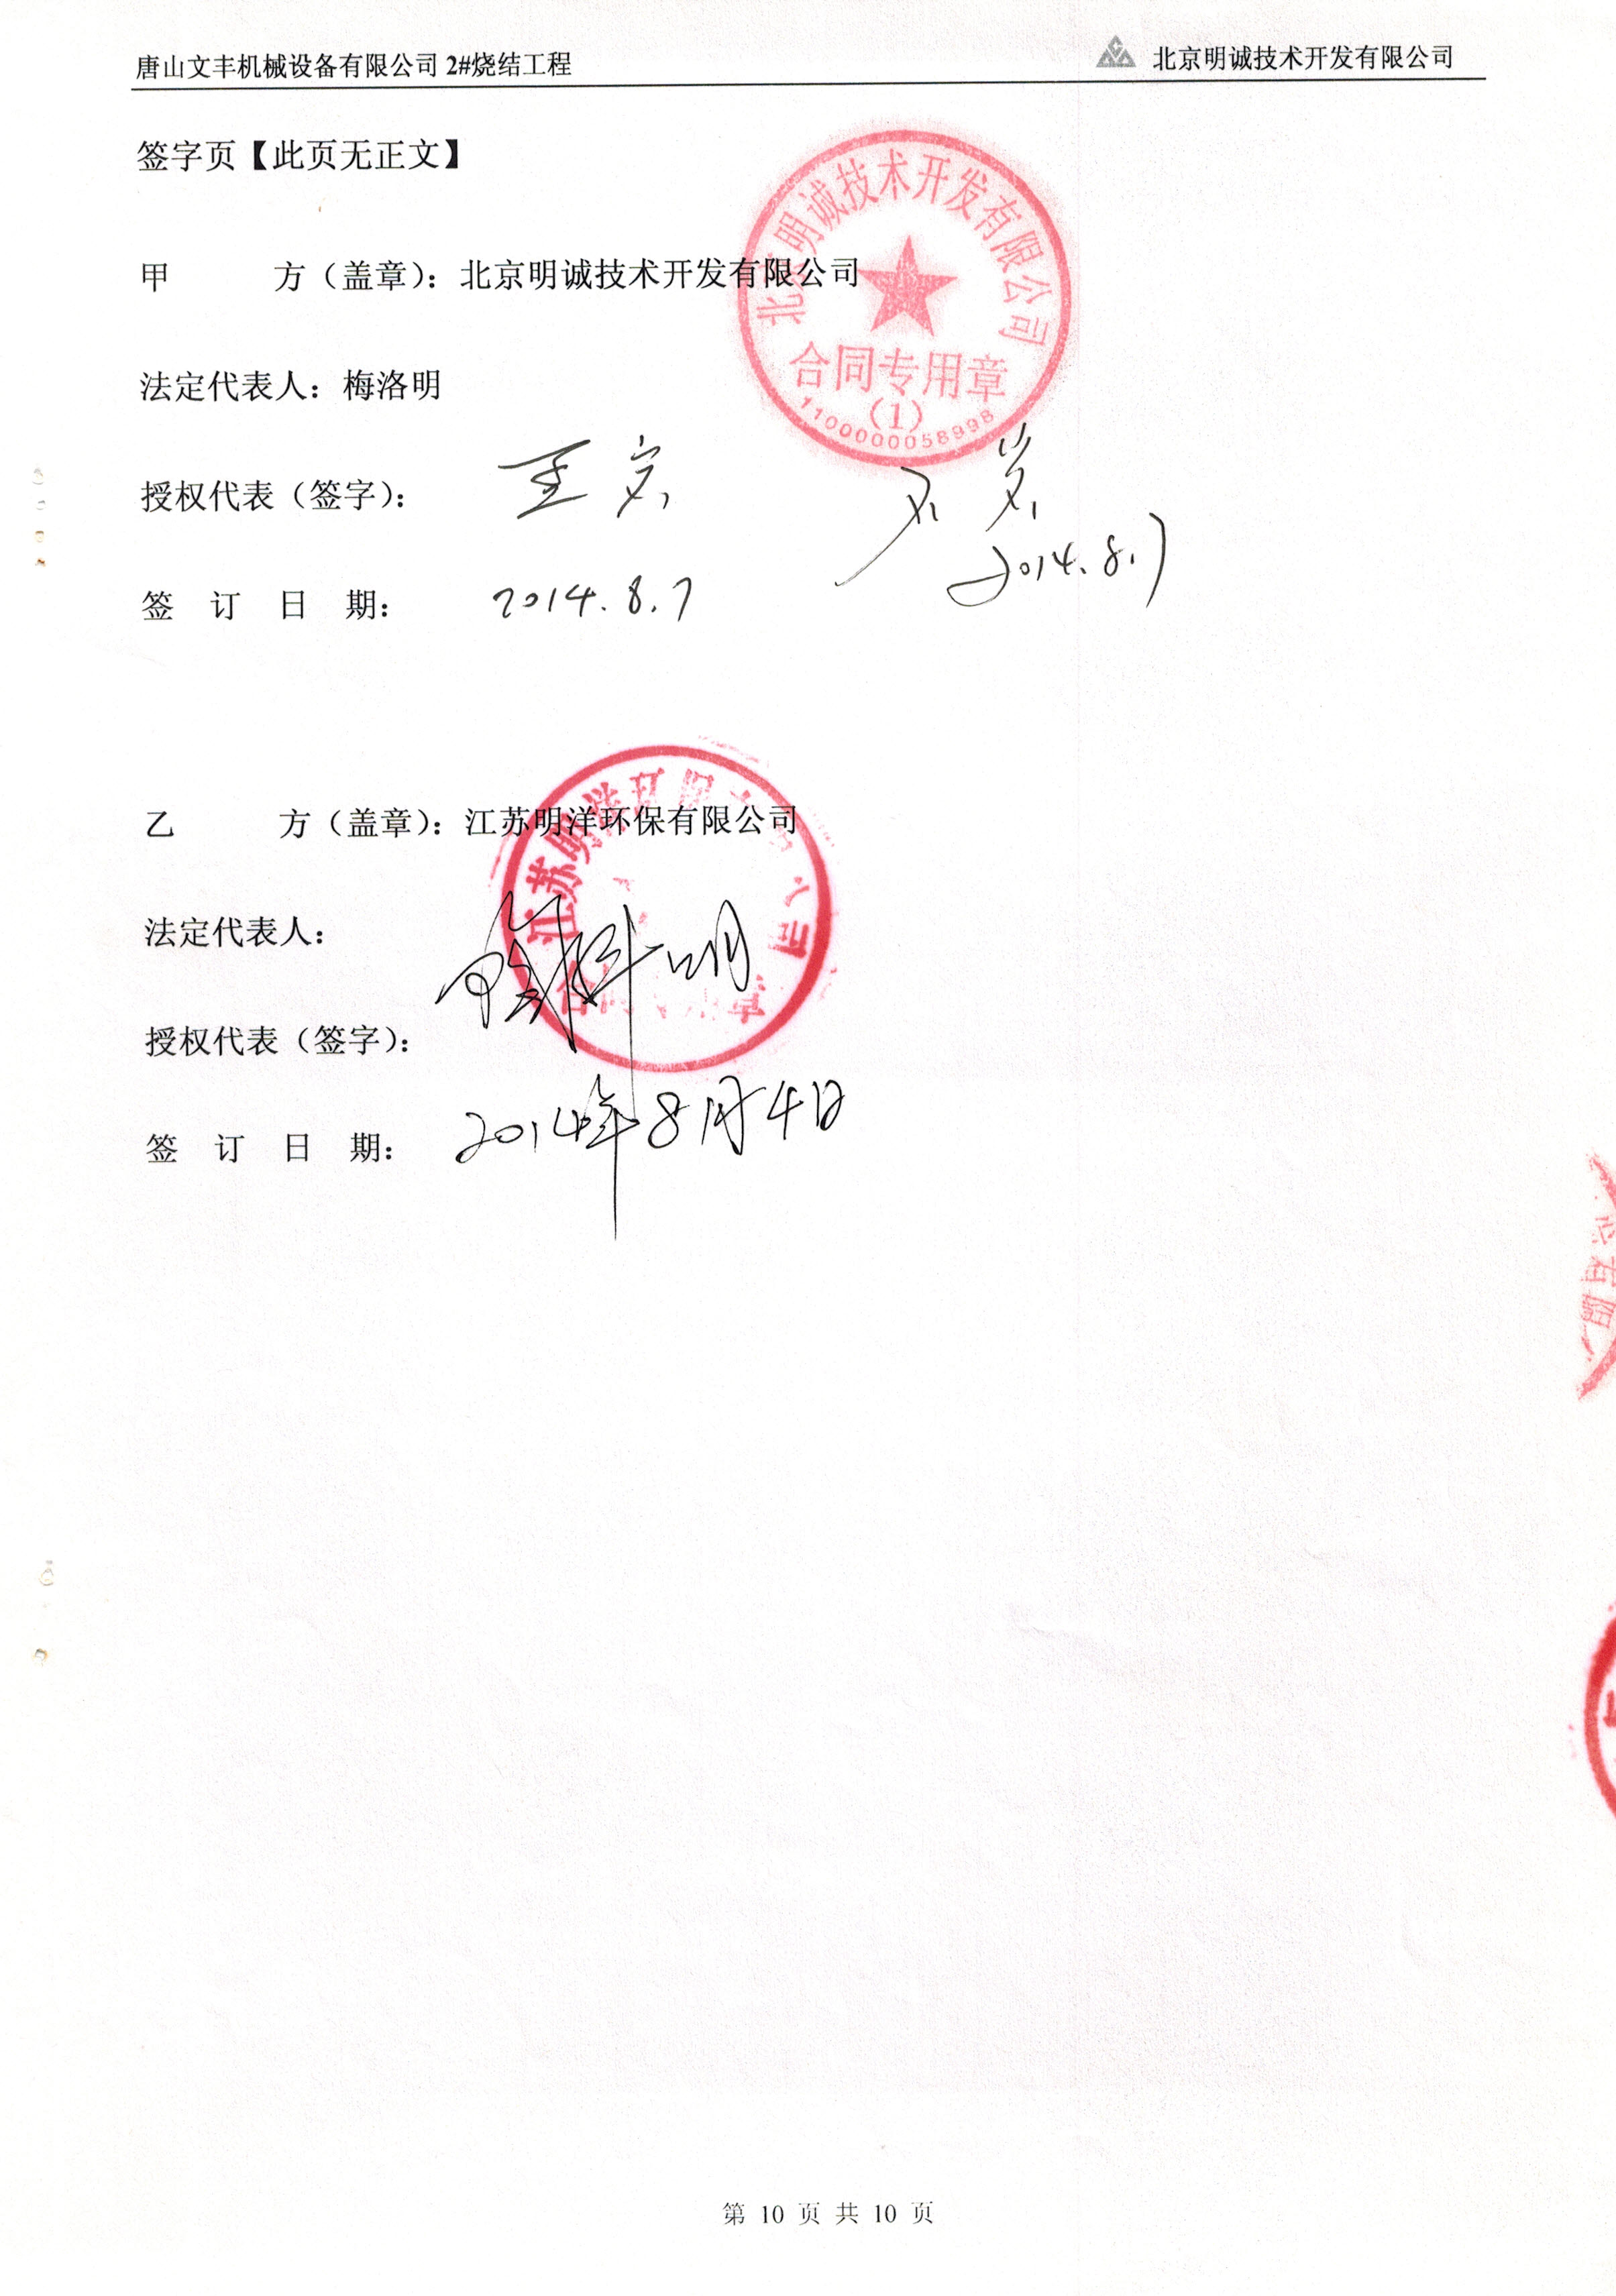 唐山文丰机械设备有限公司 2#烧结工程
北京明诚技术开发有限公司
签字页【此页无正文】
北京明诚技术开发有限公司
合同专用章
(1)
1100000058998
甲 方（盖章）：北京明诚技术开发有限公司
法定代表人：梅洛明
授权代表（签字）：
2014.8.7
签 订 日 期： 2014.8.7
乙 方（盖章）：江苏明洋环保有限公司
江苏明洋环保 司
法定代表人：
授权代表（签字）：
签 订 日 期： 2014年8月4日
有限
第 10 页 共 10 页